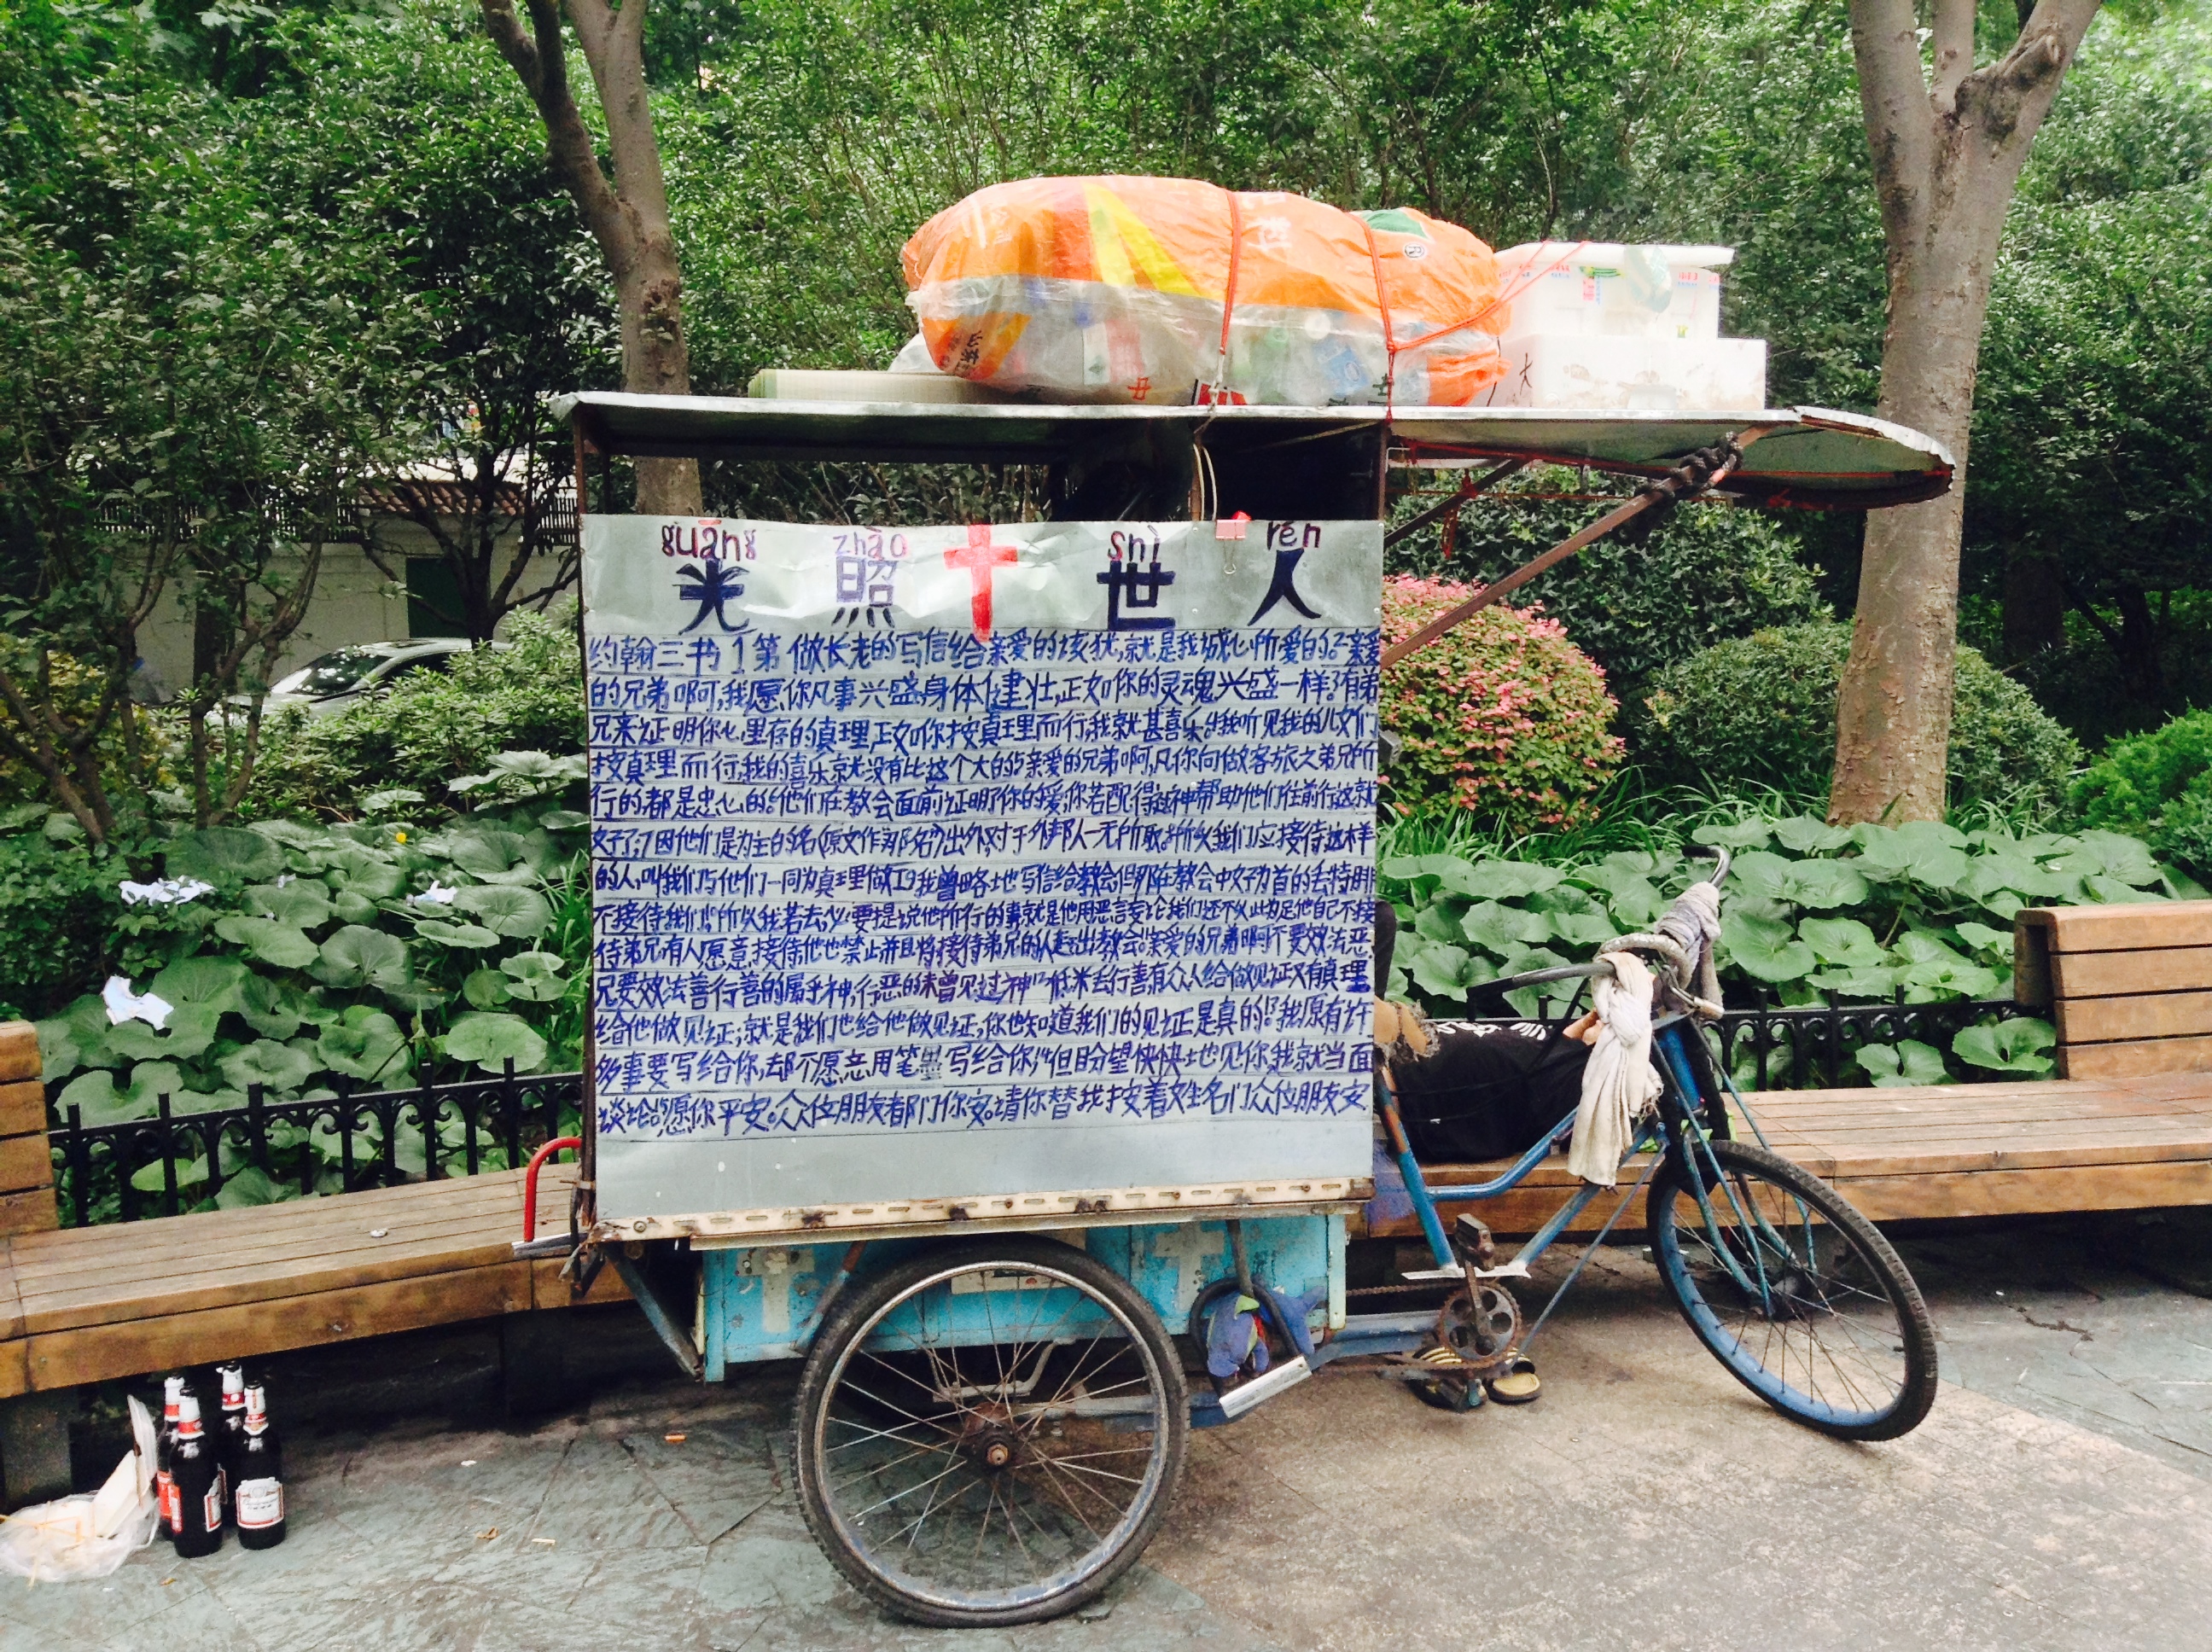 guāng zhào shì rén
光 照 世 人
约翰三书 1 第 做长老的写信给亲爱的该犹,就是我诚心所爱的。2亲爱
的兄弟啊,我愿你凡事兴盛,身体健壮,正如你的灵魂兴盛一样。3有弟
兄来证明你心里存的真理,正如你按真理而行,我就甚喜乐。4我听见我的儿女们
按真理而行,我的喜乐就没有比这个大的。5亲爱的兄弟啊,凡你向做客旅之弟兄所
行的都是忠心的。6他们在教会面前证明了你的爱,你若配得过神帮助他们往前行,这就
好了;7因他们是为主的名(原文作那名)出外,对于外邦人一无所取。8所以我们应接待这样
的人,叫我们与他们一同为真理做工。9我曾略略地写信给教会,但那在教会中好为首的丢特腓
不接待我们。10所以我若去,必要提说他所行的事,就是他用恶言妄论我们,还不以此为足,他自己不接
待弟兄,有人愿意接待,他也禁止,并且将接待弟兄的人赶出教会。亲爱的兄弟啊,不要效法恶,
只要效法善。行善的属乎神,行恶的未曾见过神。12低米丢行善,有众人给做见证,又有真理
给他做见证;就是我们也给他做见证,你也知道我们的见证是真的。13我原有许
多事要写给你,却不愿意用笔墨写给你,14但盼望快快地见你,我就当面
谈论。15愿你平安。众位朋友都问你安。请你替我按着姓名问众位朋友安